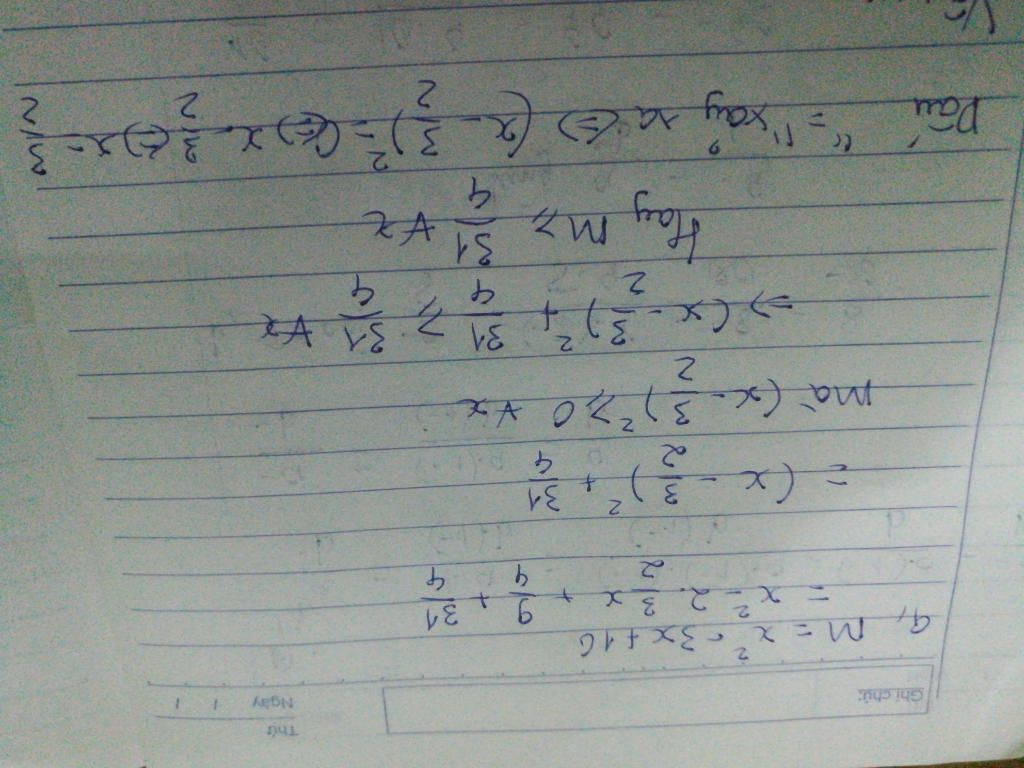 Thứ
Ghi chú:
Ngày / /
a, M = x² - 3x + 10
= x² - 2. 3/2 x + 9/4 + 31/4
= (x - 3/2)² + 31/4
Mà (x - 3/2)² ⩾ 0 ∀x
=> (x - 3/2)² + 31/4 ⩾ 31/4 ∀x
Hay M ⩾ 31/4 ∀x
Dấu "=" xảy ra (=) (x - 3/2)² = (=) x - 3/2 (=) x = 3/2